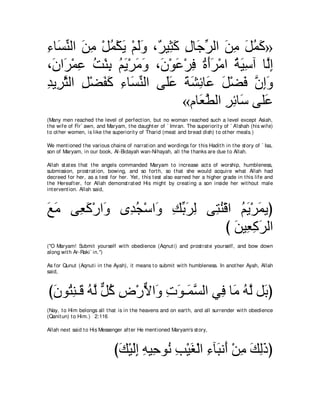 «كَمُلَ مِنَ الرِّجَالِ كَثِيرٌ، وَلَمْ يَكْمُلْ مِنَ النِّسَاءِ
إِلَّا آسِيَةُ امْرَأَةُ فِرْعَوْنَ، وَمَرْيَمُ بِنْتُ عِمْرَانَ،
وَإِنَّ فَضْلَ عَائِشَةَ عَلَى النِّسَاءِ كَفَضْلِ الثَّرِيدِ
عَلَى سَائِرِ الطَّعَامِ»
(Many men reached the level of perfection, but no woman reached such a level except Asiah,
the wife of Fir`awn, and Maryam, the daughter of `Imran. The superiority of `A'ishah (his wife)
to other women, is like the superiority of Tharid (meat and bread dish) to other meals.)
We mentioned the various chains of narration and wordings for this Hadith in the story of `Isa,
son of Maryam, in our book, Al-Bidayah wan-Nihayah, all the thanks are due to Allah.
Allah states that the angels commanded Maryam to increase acts of worship, humbleness,
submission, prostration, bowing, and so forth, so that she would acquire what Allah had
decreed for her, as a test for her. Yet, this test also earned her a higher grade in this life and
the Hereafter, for Allah demonstrated His might by creating a son inside her without male
intervention. Allah said,
(يمَرْيَمُ اقْنُتِى لِرَبِّكِ وَاسْجُدِى وَارْكَعِى مَعَ
الرَكِعِينَ )
("O Maryam! Submit yourself with obedience (Aqnuti) and prostrate yourself, and bow down
along with Ar-Raki`in.")
As for Qunut (Aqnuti in the Ayah), it means to submit with humbleness. In another Ayah, Allah
said,
(بَل لَّهُ مَا فِي السَّمَـوَتِ وَالاٌّرْضِ كُلٌّ لَّهُ قَـنِتُونَ)
(Nay, to Him belongs all that is in the heavens and on earth, and all surrender with obedience
(Qanitun) to Him.) 2:116
Allah next said to His Messenger after He mentioned Maryam's story,
(ذَلِكَ مِنْ أَنَبَآءِ الْغَيْبِ نُوحِيهِ إِلَيْكَ)